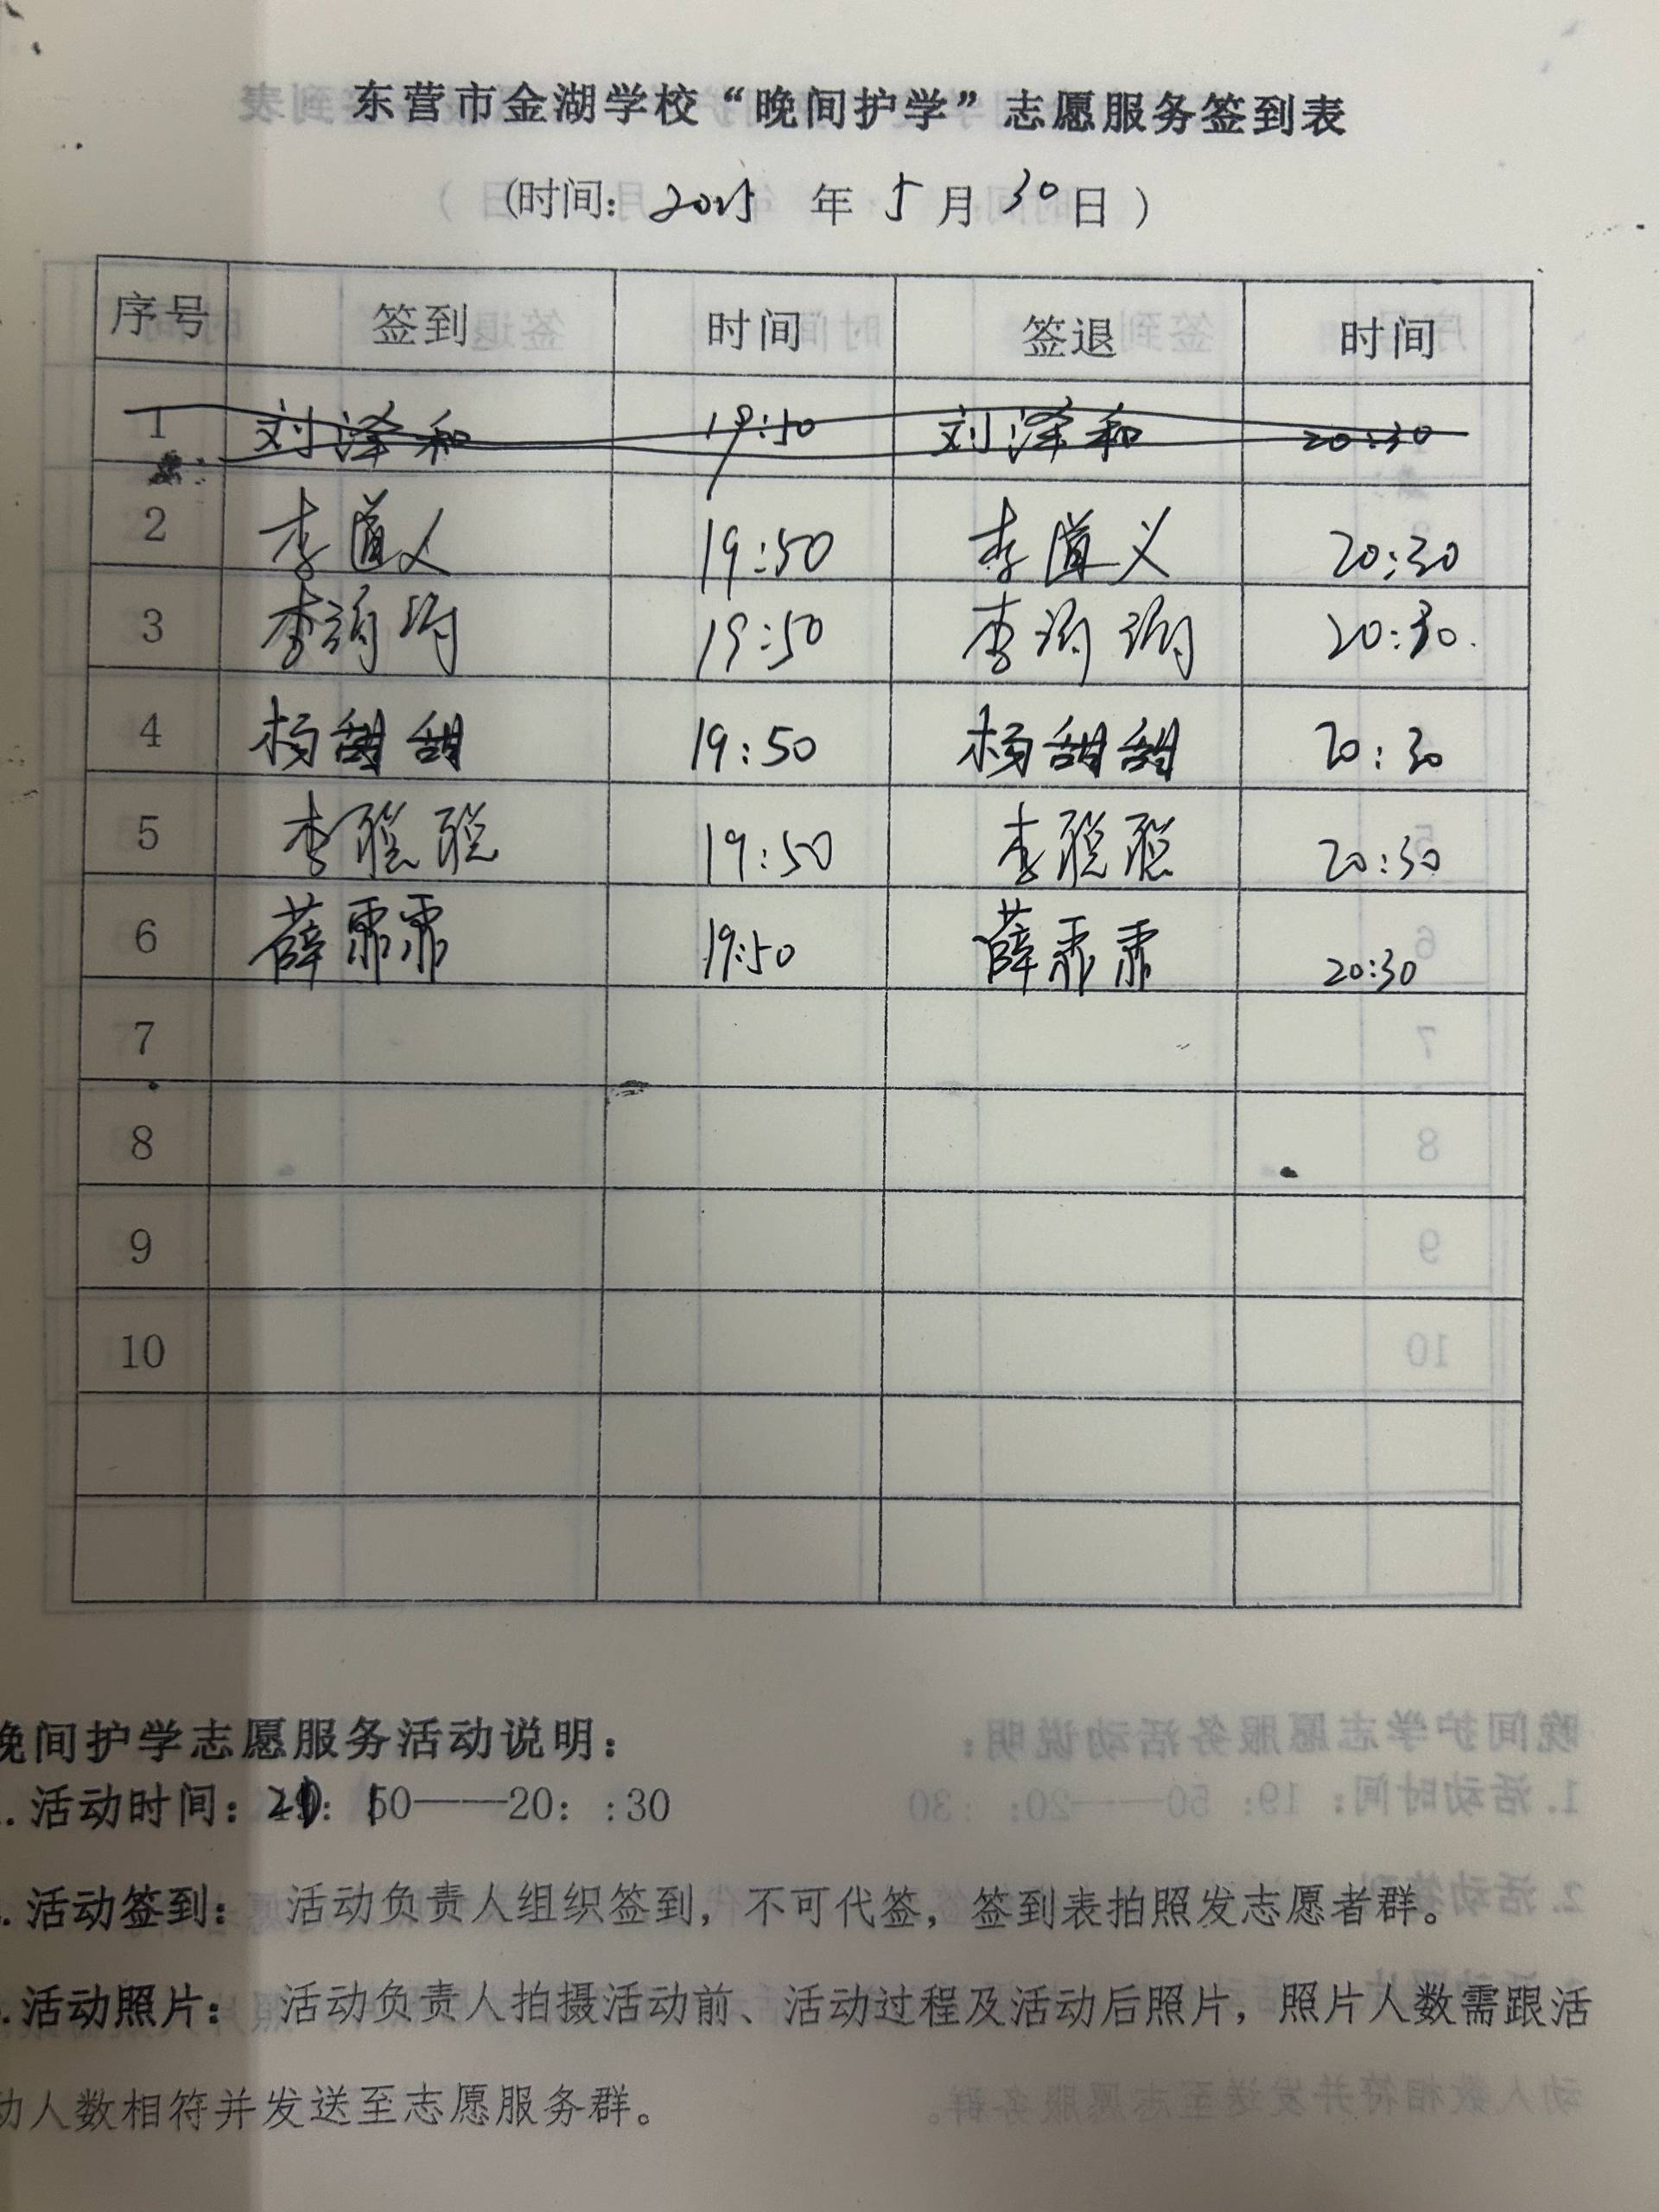 东营市金湖学校“晚间护学”志愿服务签到表
(时间: 2025 年 5 月 30 日 )
序号 签到 时间 签退 时间
1 刘泽和 19:50 刘泽和 20:30
2 李道义 19:50 李道义 20:30
3 李 19:50 李 20:30
4 杨甜甜 19:50 杨甜甜 20:30
5 李聪聪 19:50 李聪聪 20:30
6 薛霏霏 19:50 薛霏霏 20:30
7
8
9
10
晚间护学志愿服务活动说明：
.活动时间： 50——20：:30
.活动签到： 活动负责人组织签到，不可代签，签到表拍照发志愿者群。
.活动照片： 活动负责人拍摄活动前、活动过程及活动后照片，照片人数需跟活
动人数相符并发送至志愿服务群。